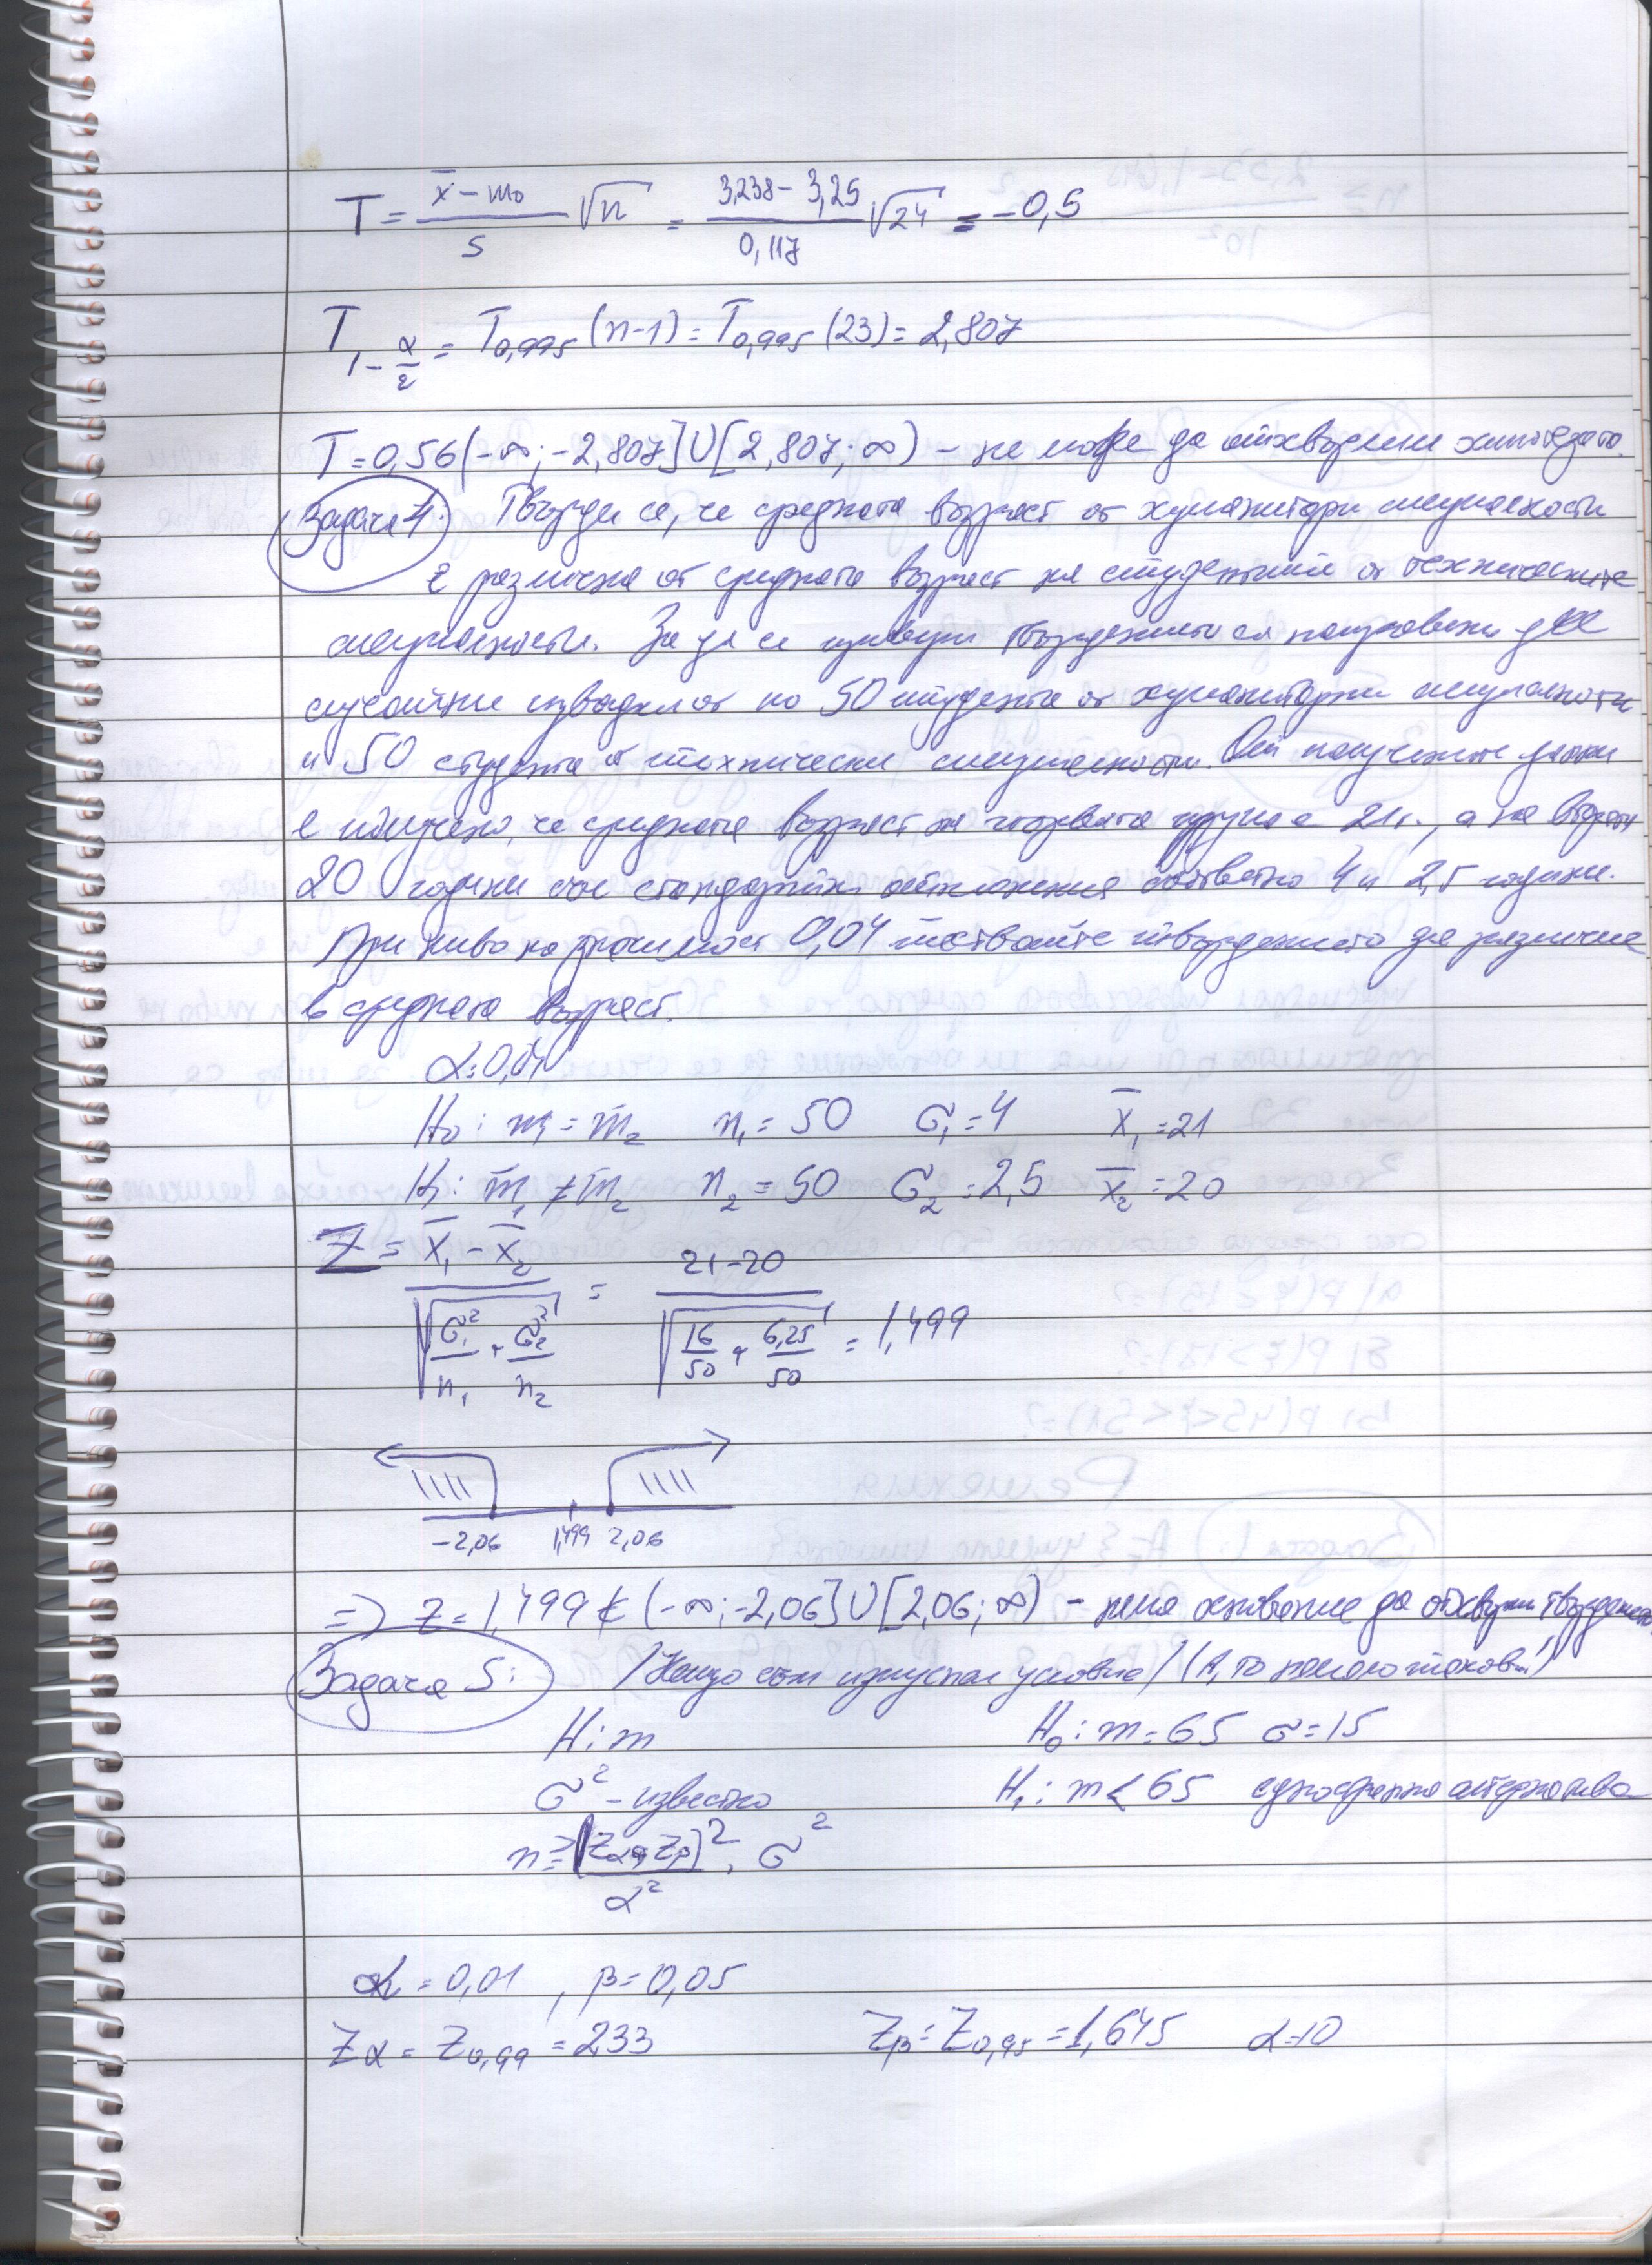 T = (x̄ – m₀)/S √n = (3,238 – 3,25)/0,117 √24 = –0,5
T₁₋α/₂ = T₀,₉₉₅(n-1) = T₀,₉₉₅(23) = 2,807
T = 0,56 (-∞; -2,807] U [2,807; ∞) – не може да отхвърлим хипотезата.
Задача 4: Твърди се, че средната възраст от хуманитарни специалности
е различна от средната възраст на студентите от техническите
специалности. За да се провери твърдението са направени две
случайни извадки от по 50 студента от хуманитарни специалности
и 50 студента от технически специалности. От получените данни
е получено, че средната възраст на първата група е 21г., а на втората
20 години със стандартни отклонения съответно 4 и 2,5 години.
При ниво на значимост 0,04 тествайте твърдението за различие
в средната възраст.
α=0,04
H₀: m₁ = m₂ n₁ = 50 σ₁ = 4 x̄₁ = 21
H₁: m₁ ≠ m₂ n₂ = 50 σ₂ = 2,5 x̄₂ = 20
Z = (x̄₁ – x̄₂)/√(σ₁²/n₁ + σ₂²/n₂) = (21-20)/√(16/50 + 6,25/50) = 1,499
-2,06 1,499 2,06
=> Z = 1,499 ∉ (-∞; -2,06] U [2,06; ∞) – няма основание да отхвърлим твърдението.
Задача 5: / Нещо съм изпуснал условие / (А, то нямало такова!)
H: m H₀: m = 65 σ = 15
σ² – известно H₁: m < 65 едностранна алтернатива
n ≥ (Zα + Zβ)²/α² . σ²
α = 0,01 , β = 0,05
Zα = Z₀,₉₉ = 2,33 Zβ = Z₀,₉₅ = 1,645 α=10